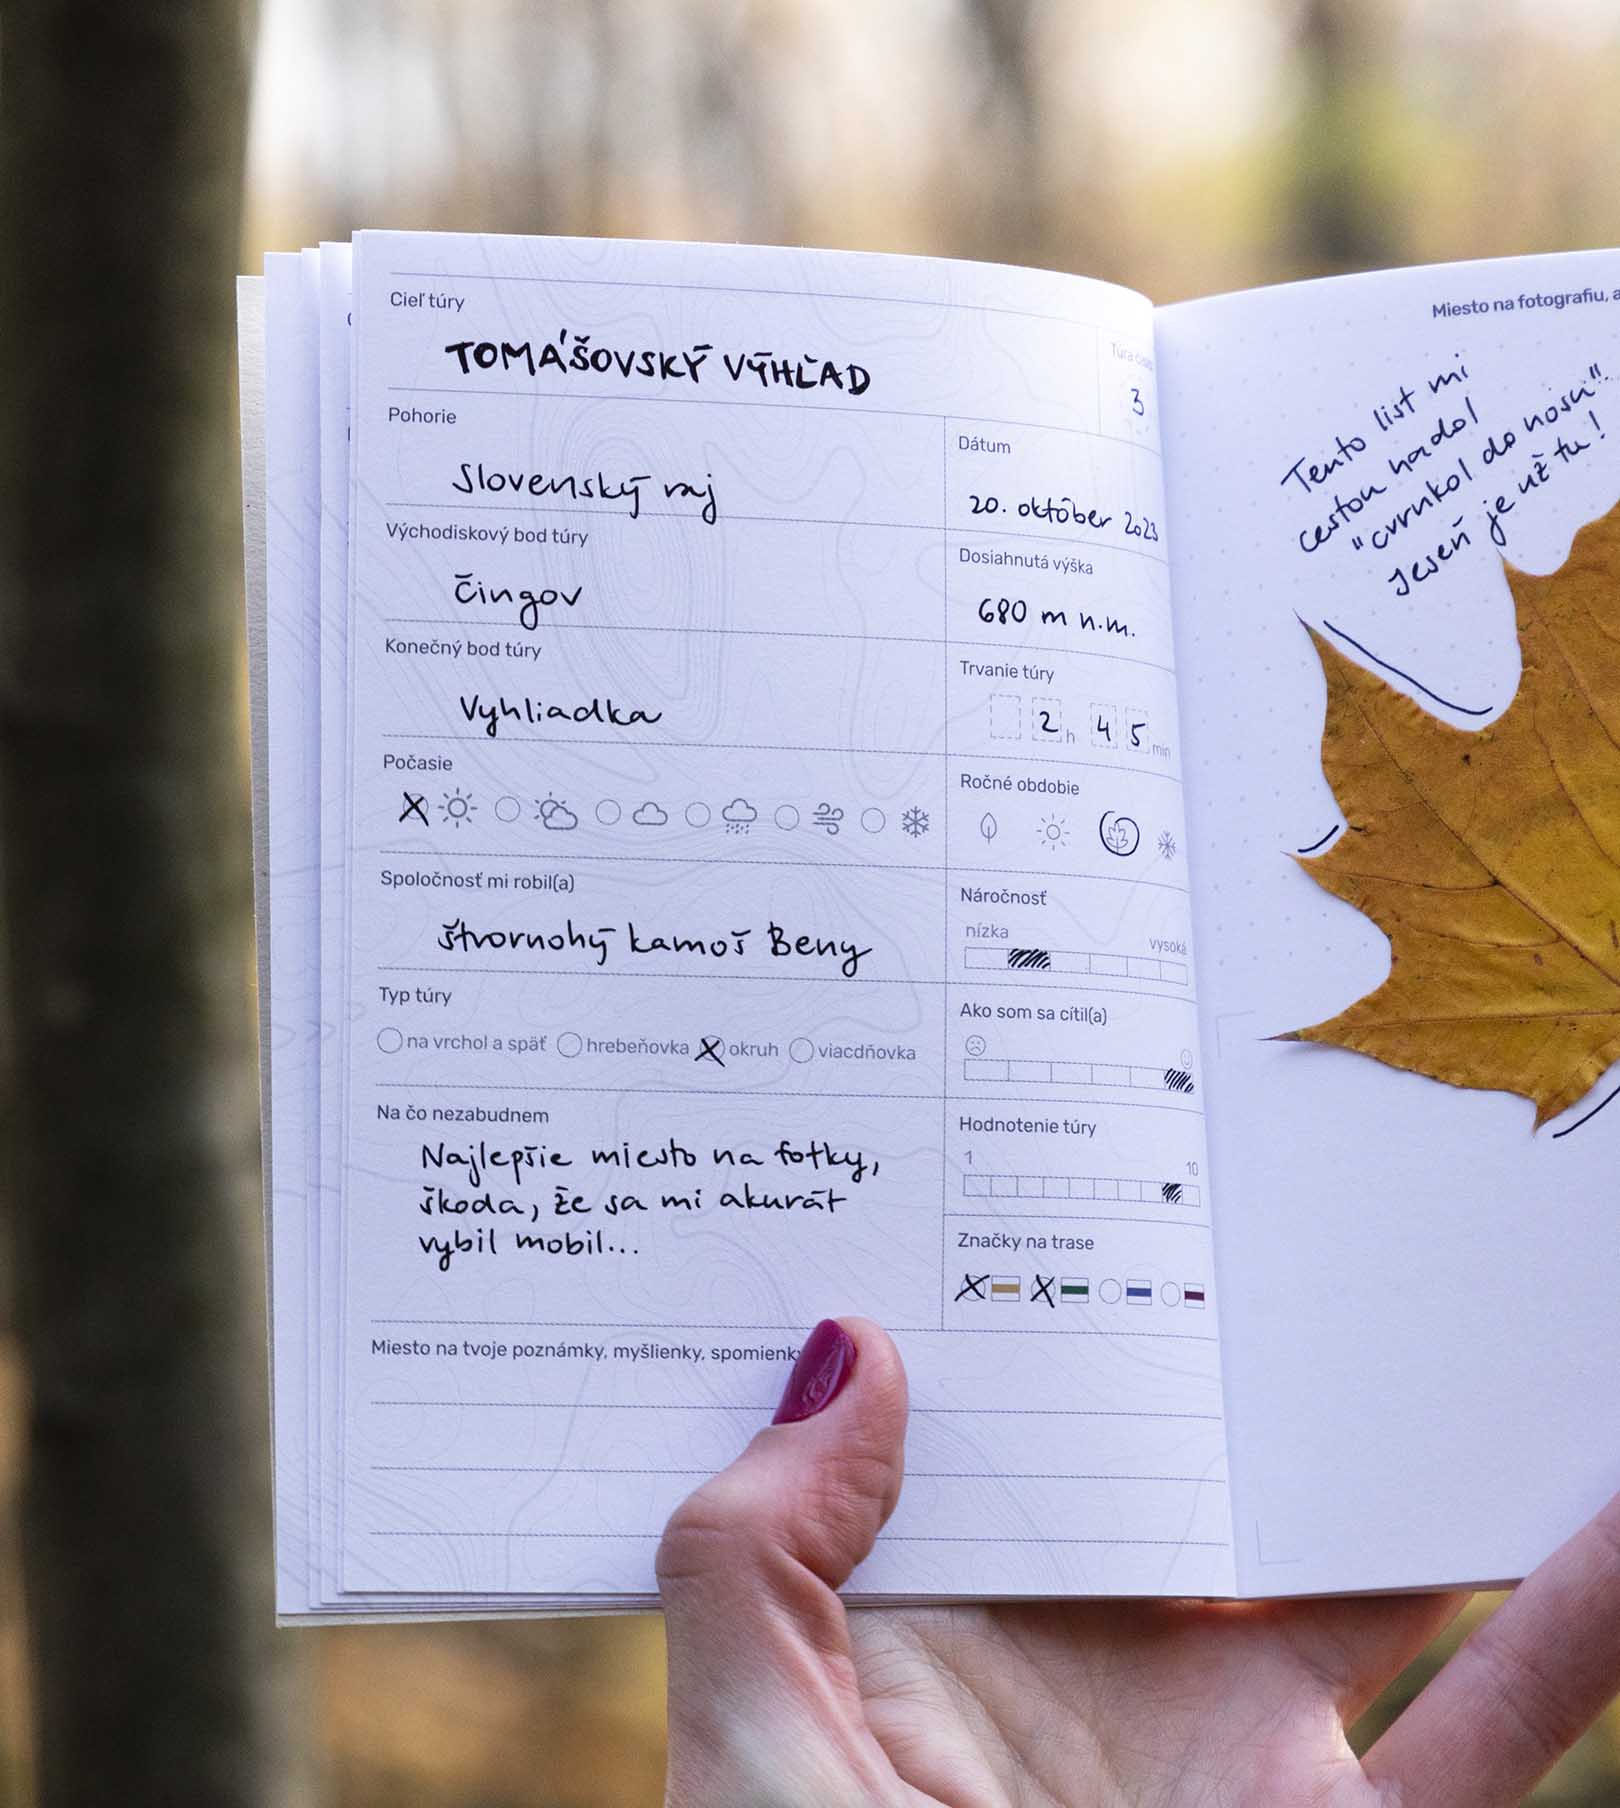 Cieľ túry
TOMÁŠOVSKÝ VÝHĽAD
Túra číslo
3
Pohorie
Slovenský raj
Dátum
20. október 2023
Východiskový bod túry
Čingov
Dosiahnutá výška
680 m n.m.
Konečný bod túry
Vyhliadka
Trvanie túry
2 h 45 min
Počasie
Ročné obdobie
Spoločnosť mi robil(a)
štvornohý kamoš Beny
Náročnosť
nízka vysoká
Typ túry
na vrchol a späť hrebeňovka okruh viacdňovka
Ako som sa cítil(a)
Na čo nezabudnem
Najlepšie miesto na fotky,
škoda, že sa mi akurát
vybil mobil...
Hodnotenie túry
1 10
Značky na trase
Miesto na tvoje poznámky, myšlienky, spomienky
Miesto na fotografiu, a
Tento list mi
cestou nadol
"cvrnkol do nosu".
Jeseň je už tu!